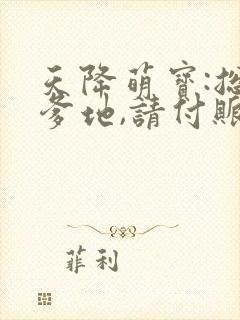 天降萌寶:總
爹地,請付賬
菲利